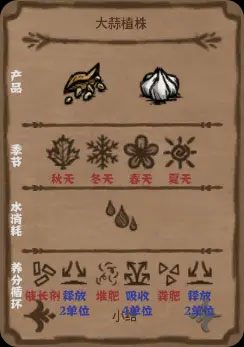 大蒜植株
产品
季节
秋天 冬天 春天 夏天
水消耗
养分循环
催长剂 释放 堆肥 吸收 粪肥 释放
2单位 4单位 2单位
小结